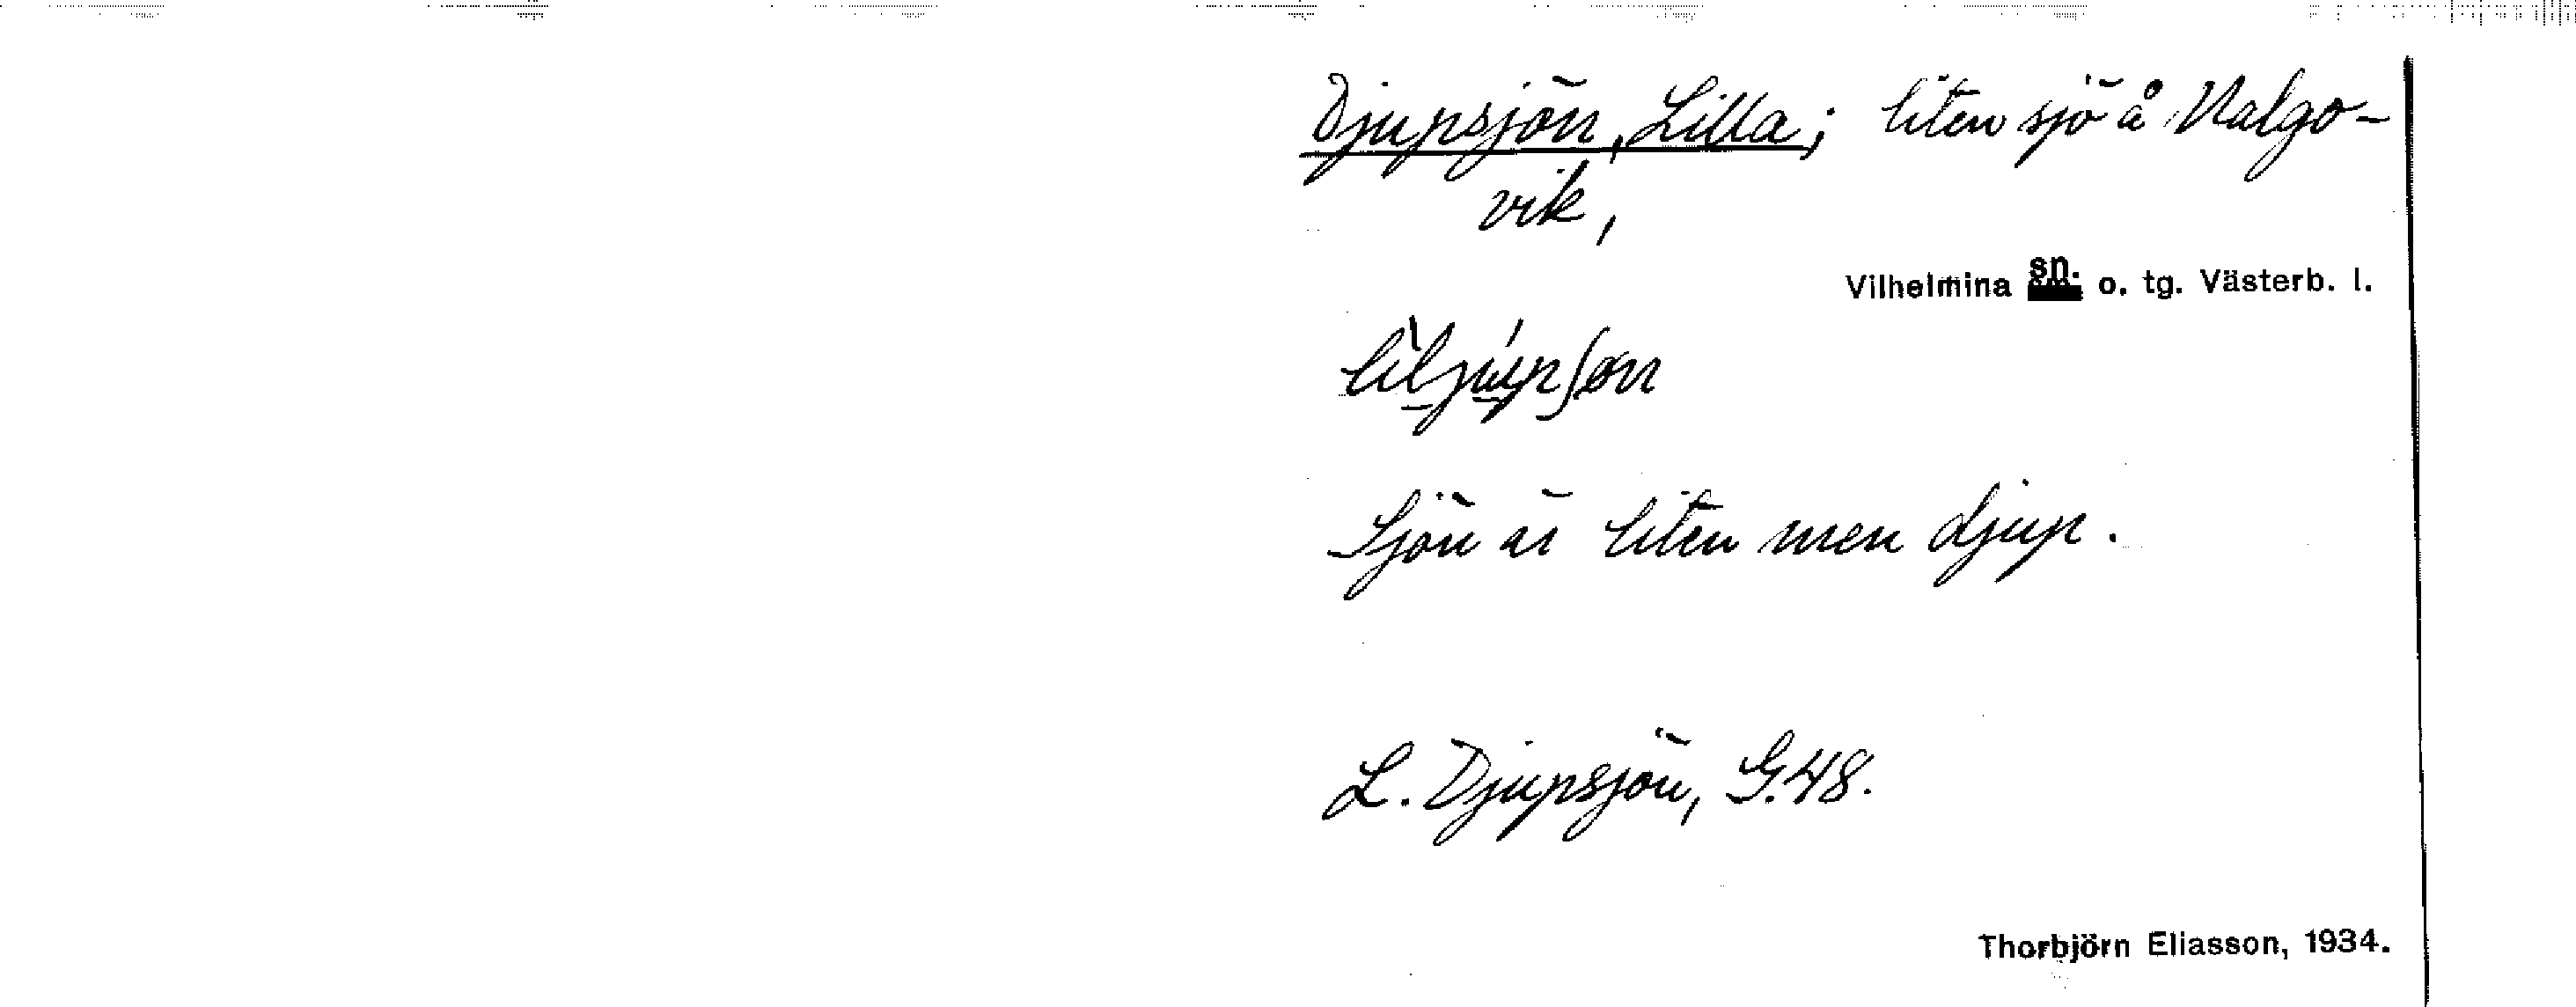 Djupsjön, Lilla; liten sjö å Nalgo-
vik,
Vilhelmina sn. o. tg. Västerb. l.
Sjön är liten men djup.
L. Djupsjön, G.48.
Thorbjörn Eliasson, 1934.